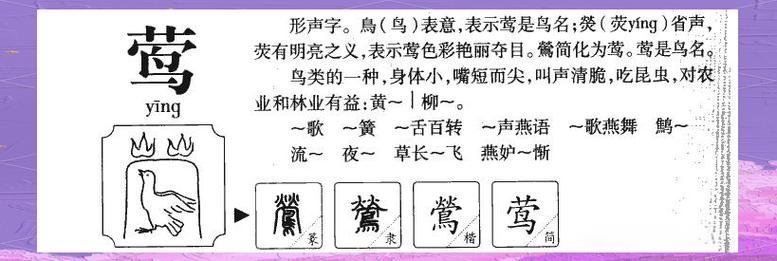 莺
yīng
形声字。鳥(鸟)表意,表示莺是鸟名;熒(荧yíng)省声,
荧有明亮之义,表示莺色彩艳丽夺目。鶯简化为莺。莺是鸟名。
鸟类的一种,身体小,嘴短而尖,叫声清脆,吃昆虫,对农
业和林业有益:黄～│柳～。
～歌 ～簧 ～舌百转 ～声燕语 ～歌燕舞 鹪～
流～ 夜～ 草长～飞 燕妒～惭
鶯 篆
鶯 隶
鶯 楷
莺 简